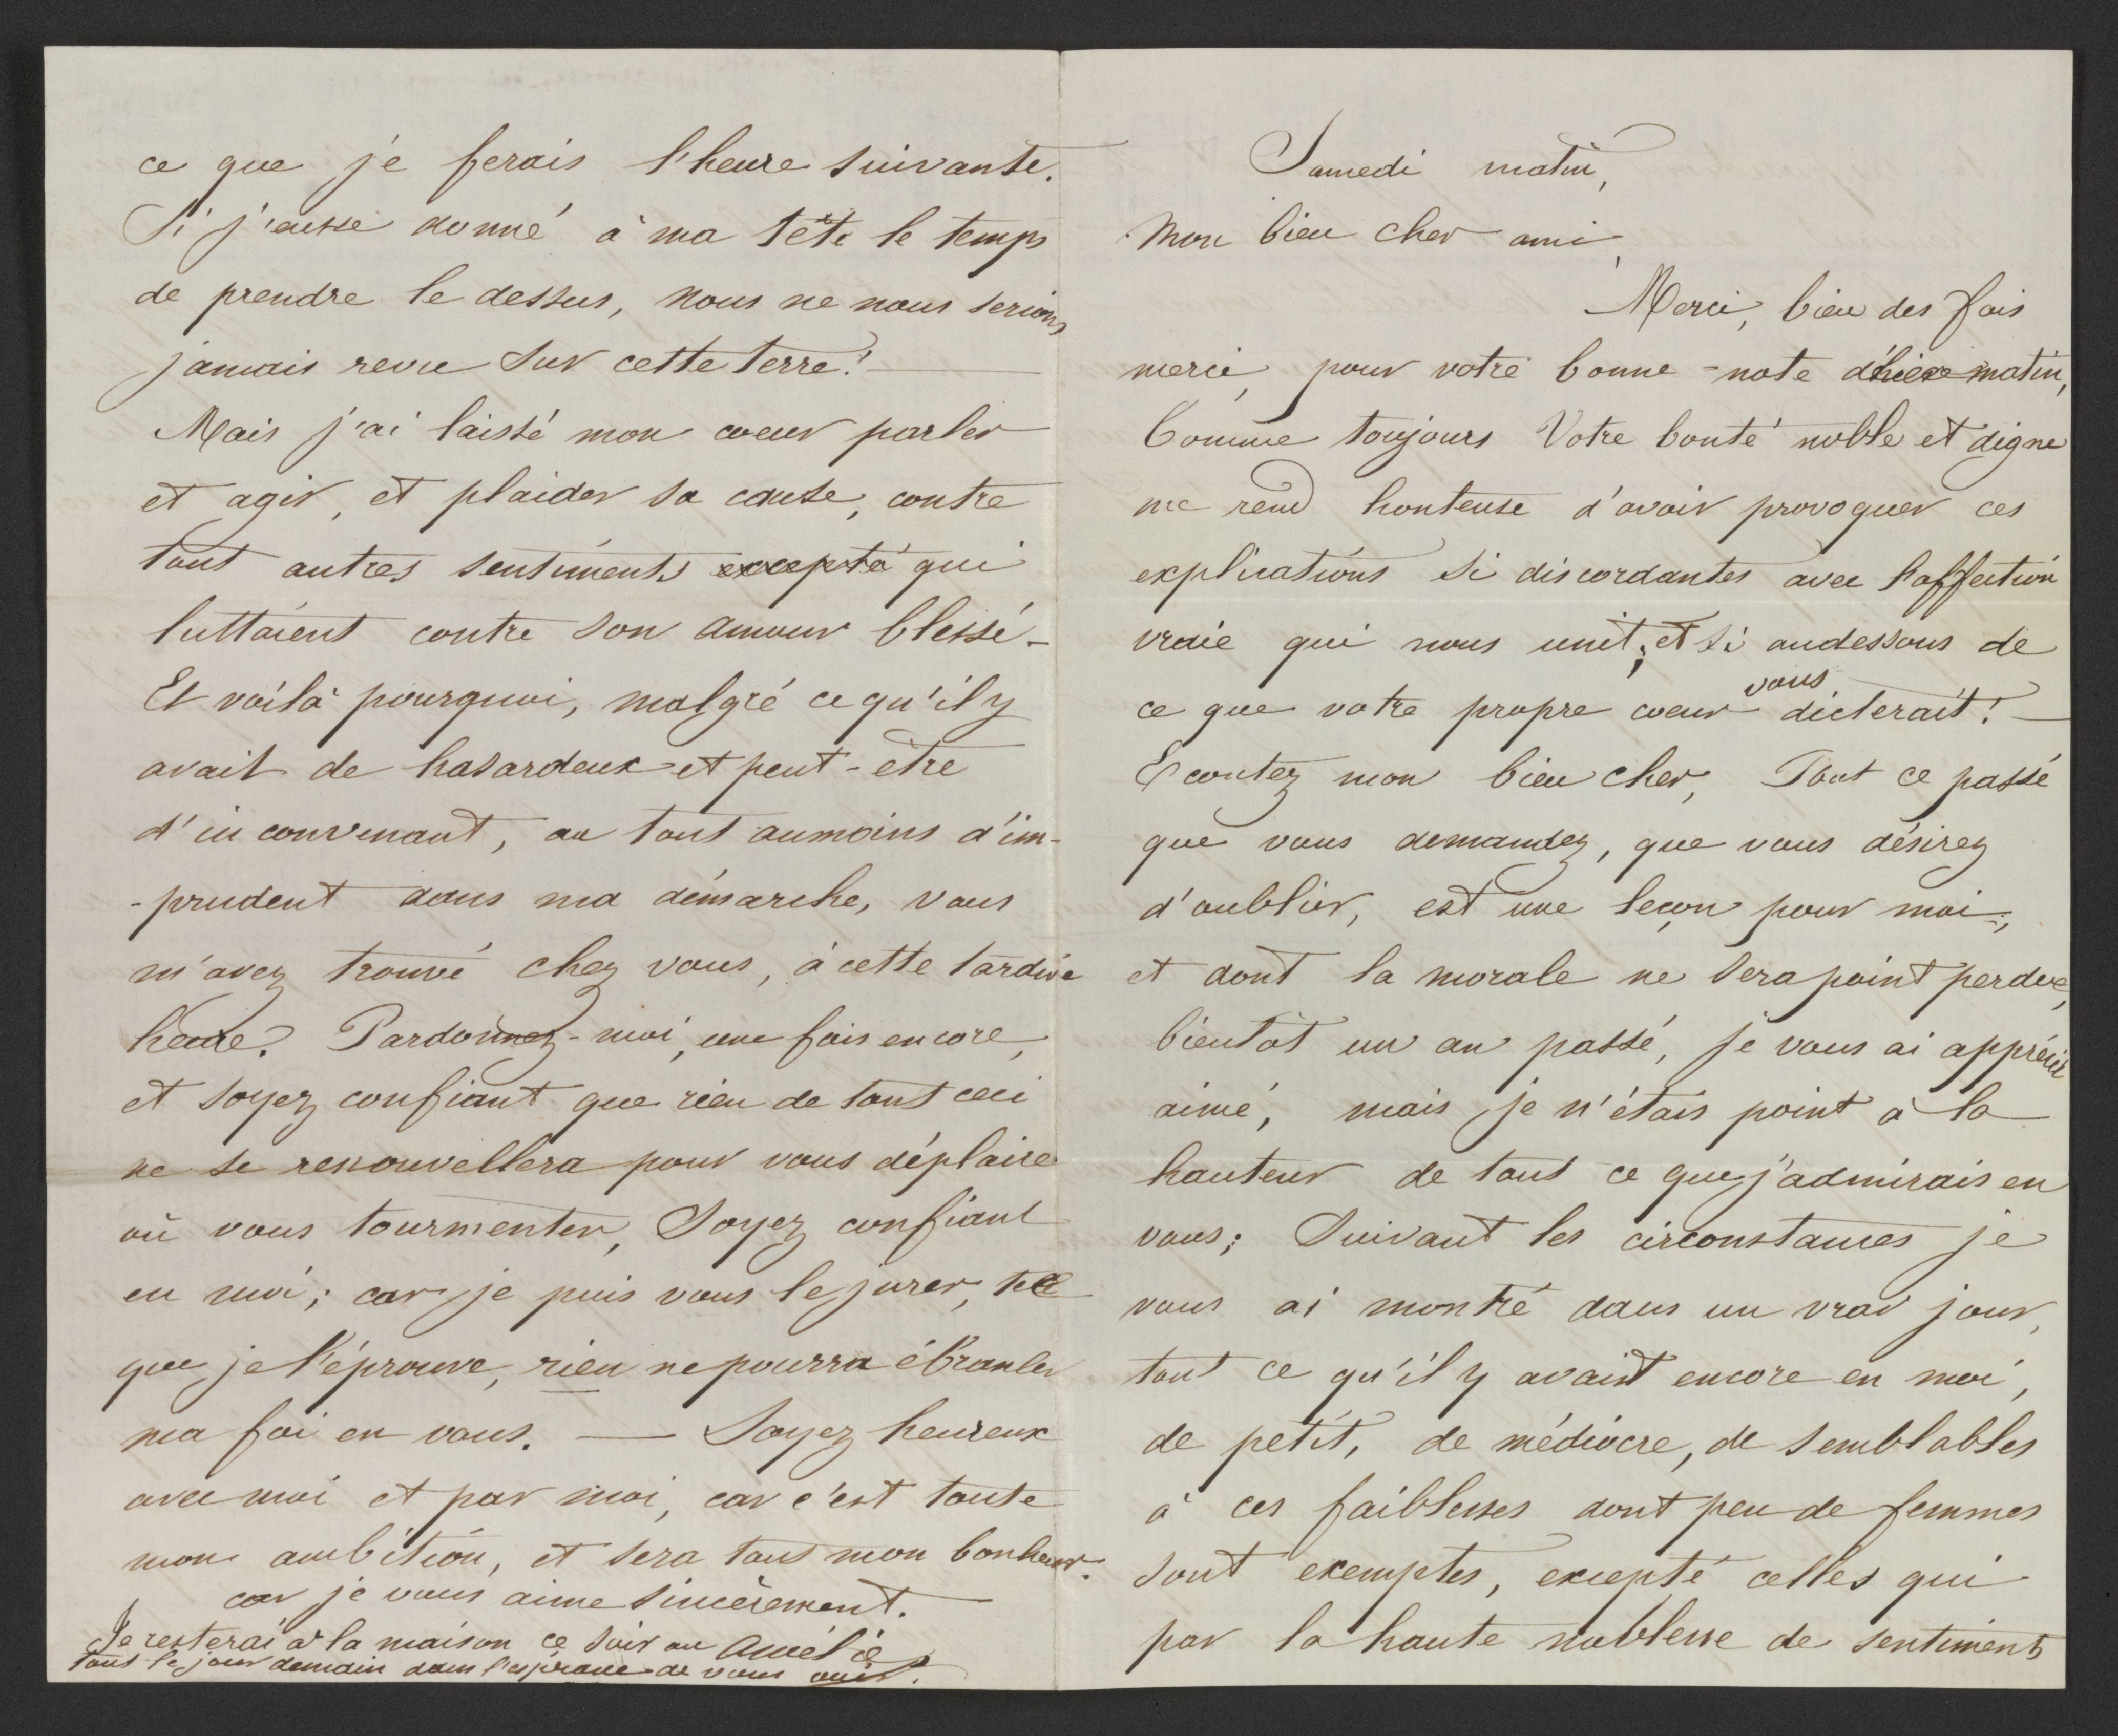 Samedi matin,
Mon bien cher ami,
Merci, bien des fois
merci, pour votre bonne note d'hier matin,
Comme toujours Votre bonté noble et digne
me rend honteuse d'avoir provoquer ces
explications si discordantes avec l'affection
vraie qui nous unit; et si audessous de
ce que votre propre coeur vous dicterait! —
Ecoutez mon bien cher, Tout ce passé
que vous demandez, que vous désirez
d'oublier, est une leçon pour moi;
et dont la morale ne sera point perdue,
bientôt un an passé, je vous ai apprécié
aimé, mais je n'étais point à la
hauteur de tout ce que j'admirais en
vous; Suivant les circonstances je
vous ai montré dans un vrai jour,
tout ce qu'il y avait encore en moi,
de petit, de médiocre, de semblables
à ces faiblesses dont peu de femmes
sont exemptes, excepté celles qui
par la haute noblesse de sentiments
ce que je ferais l'heure suivante.
Si j'eusse donné à ma tête le temps
de prendre le dessus, nous ne nous serions
jamais revu sur cette terre! —
Mais j'ai laissé mon coeur parler
et agir, et plaider sa cause, contre
tout autres sentiments excepté qui
luttaient contre son amour blessé —
Et voilà pourquoi, malgré ce qu'il y
avait de hasardeux et peut-etre
d'inconvenant, ou tout aumoins d'im-
-prudent dans ma démarche, vous
m'avez trouvé chez vous, à cette tardive
heure. Pardonnez-moi, une fois encore,
et soyez confiant que rien de tout ceci
ne se renouvellera pour vous déplaire
où vous tourmenter, Soyez confiant
en moi; car je puis vous le jurer, tel
que je l'éprouve, rien ne pourra ébranler
ma foi en vous. — Soyez heureux
avec moi et par moi, car c'est toute
mon ambition, et sera tout mon bonheur.
car je vous aime sincèrement. —
Amélie
Je resterai à la maison ce soir ou
tout le jour demain dans l'espérance de vous